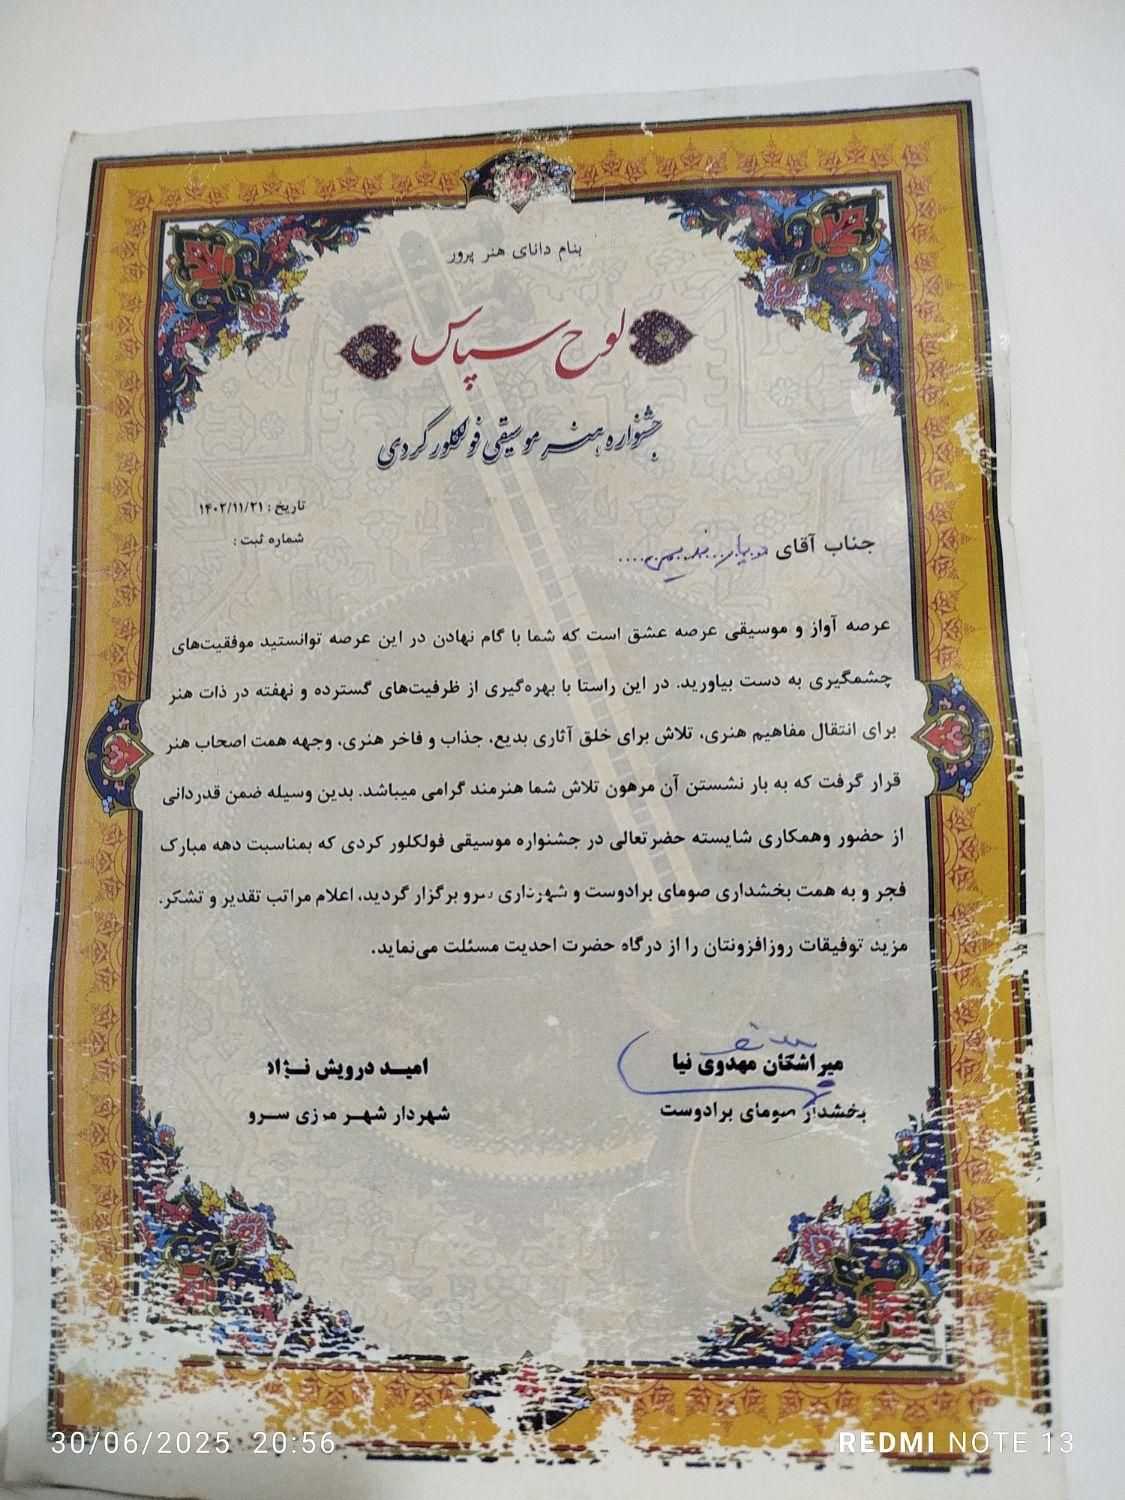 بنام دانای هنر پرور
لوح سپاس
جشنواره هنر موسیقی فولکلور کردی
تاریخ : ۱۴۰۲/۱۱/۲۱
شماره ثبت :
جناب آقای
عرصه آواز و موسیقی عرصه عشق است که شما با گام نهادن در این عرصه توانستید موفقیت‌های
چشمگیری به دست بیاورید. در این راستا با بهره‌گیری از ظرفیت‌های گسترده و نهفته در ذات هنر
برای انتقال مفاهیم هنری، تلاش برای خلق آثاری بدیع، جذاب و فاخر هنری، وجهه همت اصحاب هنر
قرار گرفت که به بار نشستن آن مرهون تلاش شما هنرمند گرامی میباشد. بدین وسیله ضمن قدردانی
از حضور وهمکاری شایسته حضرتعالی در جشنواره موسیقی فولکلور کردی که بمناسبت دهه مبارک
فجر و به همت بخشداری صومای برادوست و شهرداری سرو برگزار گردید، اعلام مراتب تقدیر و تشکر.
مزید توفیقات روزافزونتان را از درگاه حضرت احدیت مسئلت می‌نماید.
میراشکان مهدوی نیا
بخشدار صومای برادوست
امید درویش نژاد
شهردار شهر مرزی سرو
30/06/2025 20:56
REDMI NOTE 13